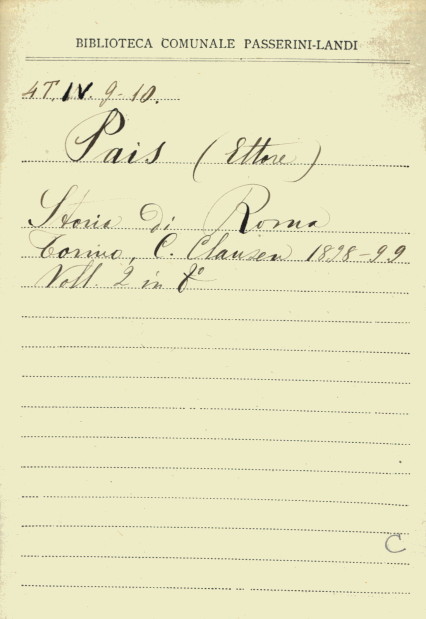 BIBLIOTECA COMUNALE PASSERINI-LANDI
4T.IV. 9-10.
Pais (Ettore)
Storia di Roma
Torino, C. Clausen 1898-99
Voll. 2 in 8°
C